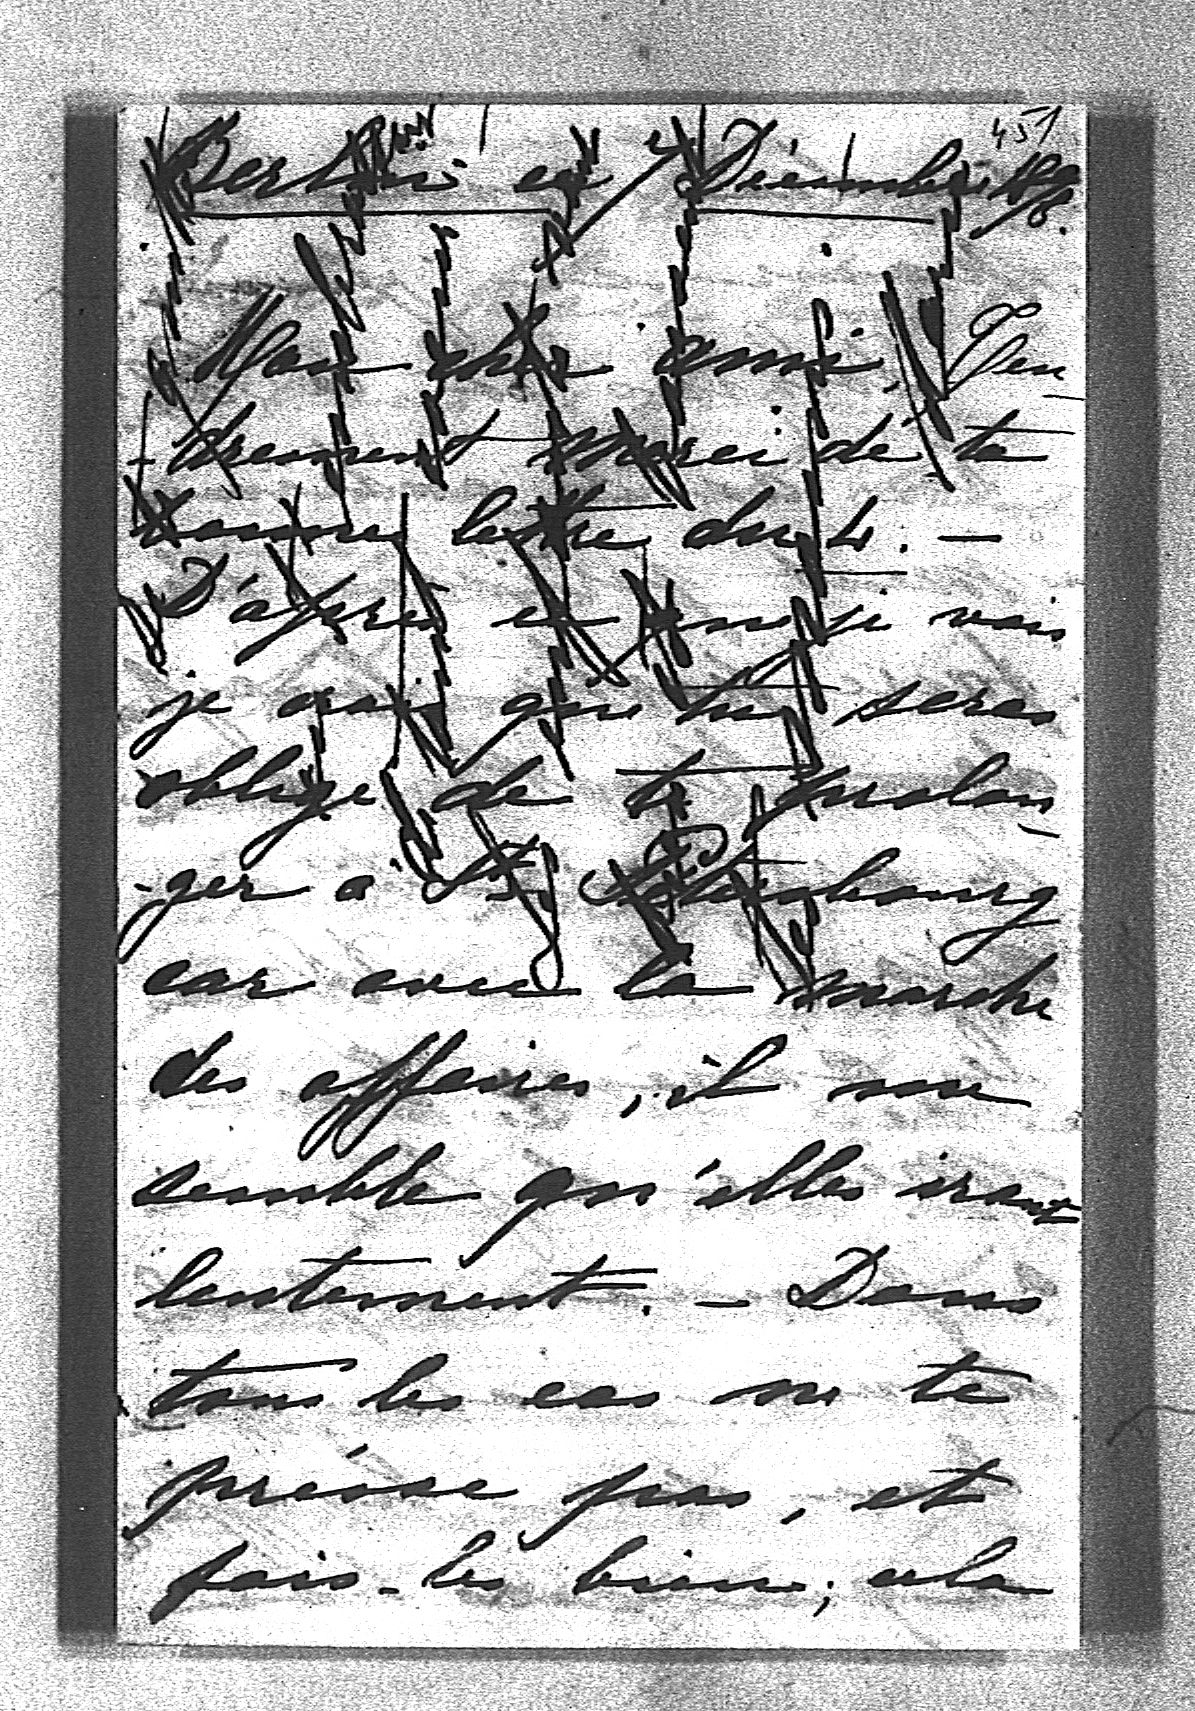 451
Berlin ce Décembre
Mon cher ami. Ten
-drement merci de ta
bonne lettre du 4. —
D'après ce que je vois
je crois que tu seras
obligé de te prolon
-ger à St. Petersbourg
car avec la marche
des affaires, il me
semble qu'elles iront
lentement. — Dans
tous les cas ne te
presse pas, et
fais-les bien; cela